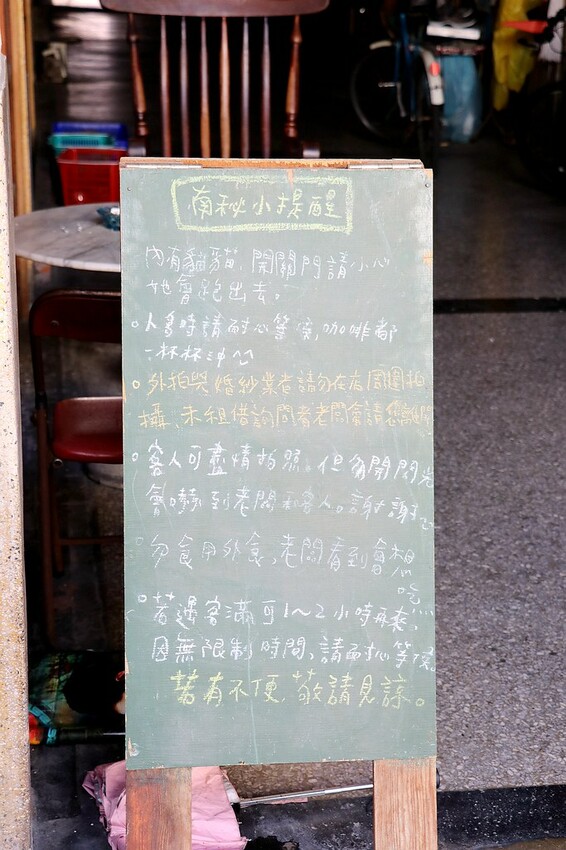 南秘小提醒
內有貓貓,開關門請小心
牠會跑出去。
。人多時請耐心等候,咖啡都
一杯杯沖
。外拍與婚紗業者請勿在店周圍拍
攝、未租借詢問者老闆會請您離開
。客人可盡情拍照。但多開閃光
會嚇到老闆和客人。謝謝
。勿食用外食,老闆看到會想
吃
。若遇客滿可1～2小時再來。
因無限制時間,請耐心等候。
若有不便,敬請見諒。